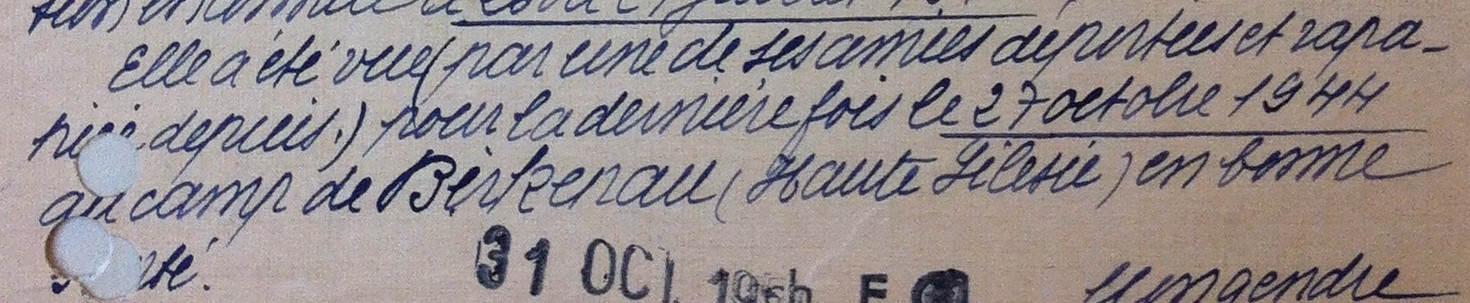 Elle a été vue (par une de ses amies déportées et rapa-
triée depuis.) pour la dernière fois le 27 octobre 1944
au camp de Birkenau (Haute Silésie) en bonne
santé.
31 OCT. F